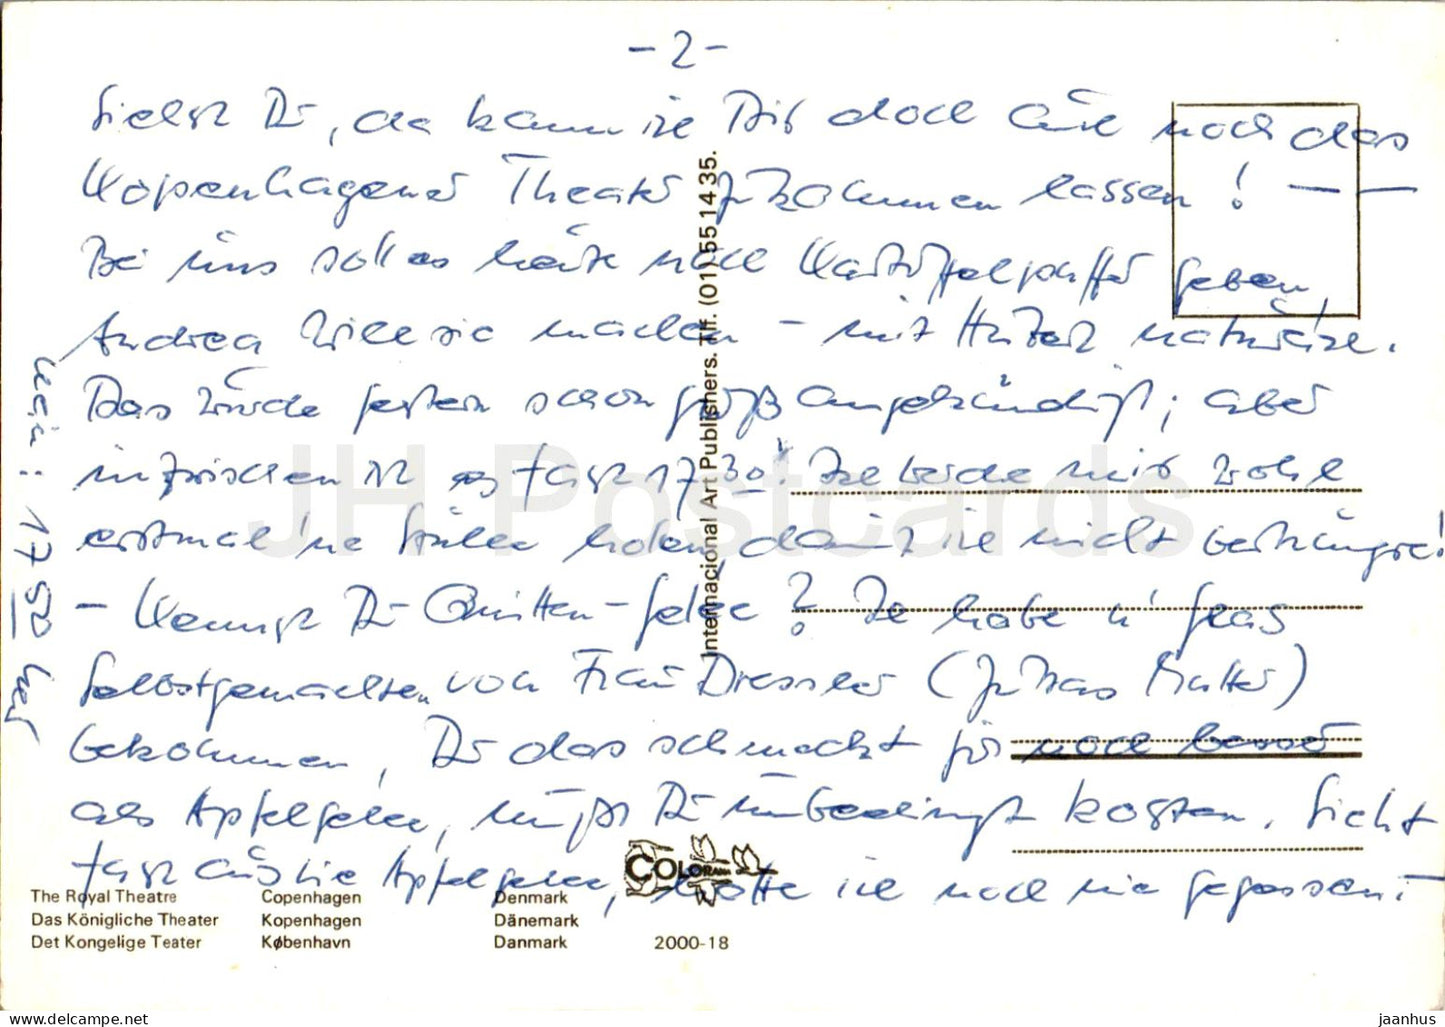 - 2 -
Siehst Du, da kann ich Dir doch auch noch das
Kopenhagener Theater zukommen lassen! — —
Bei uns soll es heute noch Kartoffelpuffer geben,
Andrea will sie machen - mit Hützel natürlich.
Das wurde gestern schon groß angekündigt; aber
inzwischen ist es fast 17 30! Ich werde mir wohl
erstmal 'ne Stulle holen damit ich nicht verhungre!
- Kennst Du Quitten-Gelee? Ich habe n' Glas
Selbstgemachten von Frau Dressler (Jukas Mutter)
bekommen, Du das schmeckt ja noch besser
als Apfelgelee, mußt Du unbedingt kosten. Sieht
fast aus wie Apfelgelee, hatte ich noch nie gegessen!
nein: 17 50 Uhr
International Art Publishers. Tlf. (01) 55 14 35.
COLORAMA
The Royal Theatre Copenhagen Denmark
Das Königliche Theater Kopenhagen Dänemark
Det Kongelige Teater København Danmark 2000-18
JH Postcards
www.delcampe.net
jaanhus